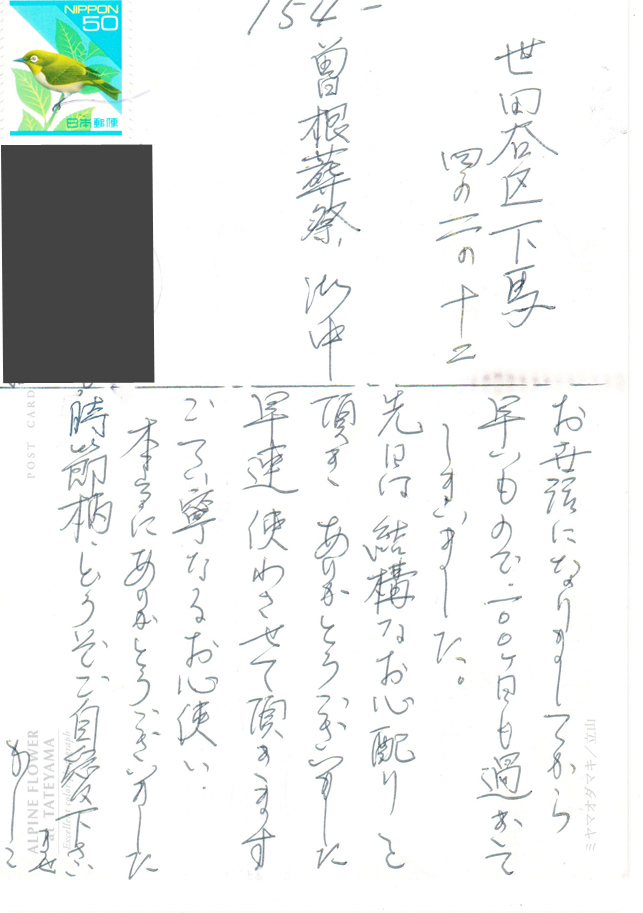 NIPPON
50
日本郵便
154-
世田谷区下馬
四の二の十二
曽根葬祭 御中
お世話になりましてから
早いもので一〇〇ヶ日も過ぎて
しまいました。
先日は結構なお心配りを
頂き ありがとうございました
早速使わさせて頂きます
ごてい寧なるお心使い
本当にありがとうございました
時節柄どうぞご自愛下さい
ませ
かしこ
POST CARD
ALPINE FLOWER
TATEYAMA
ミヤマオダマキ／立山